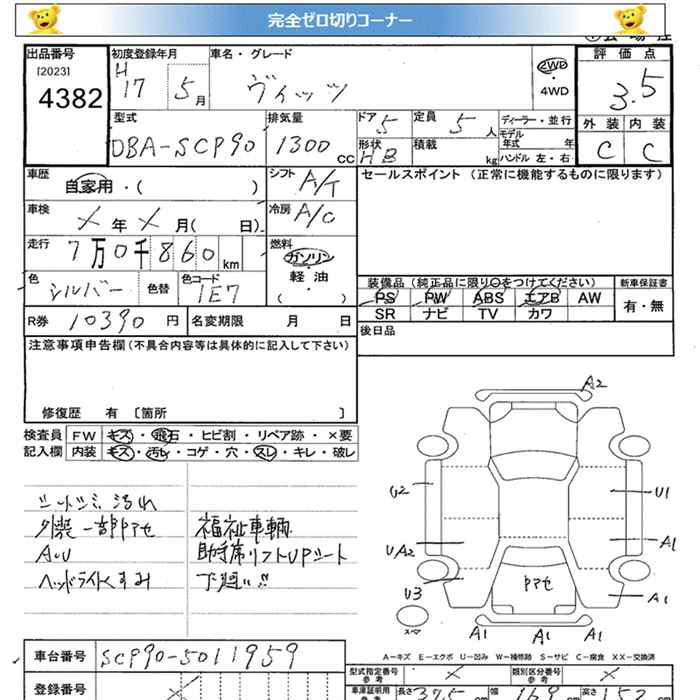 完全ゼロ切りコーナー
出品番号
[2023]
4382
初度登録年月
H
17 5月
車名・グレード
ヴィッツ
2WD
・
4WD
評価点
3.5
外装 内装
C C
型式
DBA-SCP90
排気量
1300 CC
ドア 5
定員 5 人
形状 HB
積載 kg
ディーラー・並行
モデル年式 年
ハンドル 左・右
車歴
自家用・( )
シフト A/T
セールスポイント (正常に機能するものに限ります)
車検
メ 年 メ 月( 日)
冷房 A/C
走行
7万0千860 km
燃料
ガソリン
・
軽油
・
( )
色
シルバー
色替
色コード
1E7
装備品 (純正品に限り○をつけてください)
新車保証書
PS PW ABS エアB AW
SR ナビ TV カワ
有・無
R券 10390 円
名変期限 月 日
後日品
注意事項申告欄 (不具合内容等は具体的に記入して下さい)
修復歴 有 [箇所 ]
検査員 FW キズ・飛石・ヒビ割・リペア跡・×要
記入欄 内装 キズ・汚れ・コゲ・穴・スレ・キレ・破レ
シートシミ汚れ
外装一部ドアセ
AU
ヘッドライトくすみ
福祉車輌
助手席リフトUPシート
A2
U2
U1
UA2
A1
U3
A1
A1
A1
A1
A−キズ E−エクボ U−凹み W−補修跡 S−サビ C−腐食 XX−交換済
車台番号 SCP90-5011959
登録番号
型式指定番号
参考
類別区分番号
参考
長さ
高さ